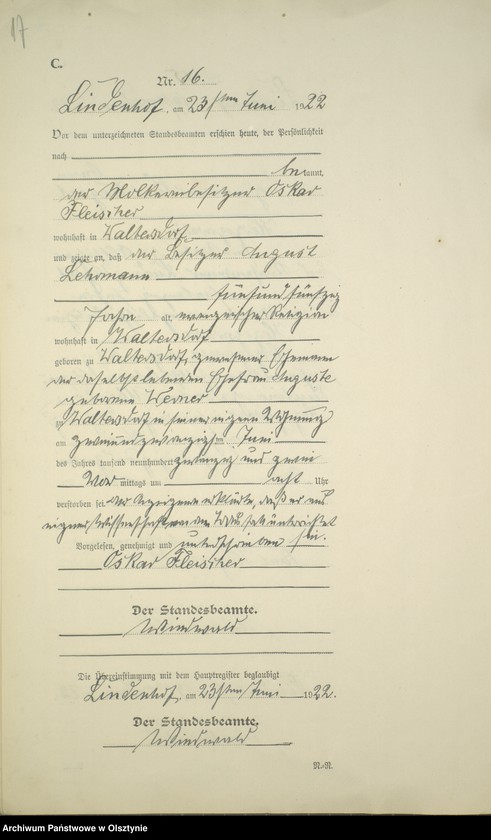 17
C.
Nr. 16.
Lindenhof, am 23sten Juni 1922
Vor dem unterzeichneten Standesbeamten erschien heute, der Persönlichkeit
nach
bekannt,
der Molkereibesitzer Oskar
Fleischer
wohnhaft in Waltersdorf
und zeigte an, daß der Besitzer August
Lehrmann
fünfundfünfzig
Jahre alt, evangelischer Religion
wohnhaft in Waltersdorf
geboren zu Waltersdorf, gewesener Ehemann
der daselbst lebenden Ehefrau Auguste
geborene Werner
zu Waltersdorf in seiner eigenen Wohnung
am zweiundzwanzigsten Juni
des Jahres tausend neunhundert zwanzig und zwei
Vor mittags um acht Uhr
verstorben sei. Der Anzeigende erklärte, daß er aus
eigener Wissenschaft von dem Tode unterrichtet
sei.
Vorgelesen, genehmigt und unterschrieben
Oskar Fleischer
Der Standesbeamte.
Windwald
Die Übereinstimmung mit dem Hauptregister beglaubigt
Lindenhof, am 23sten Juni 1922.
Der Standesbeamte.
Windwald
Archiwum Państwowe w Olsztynie